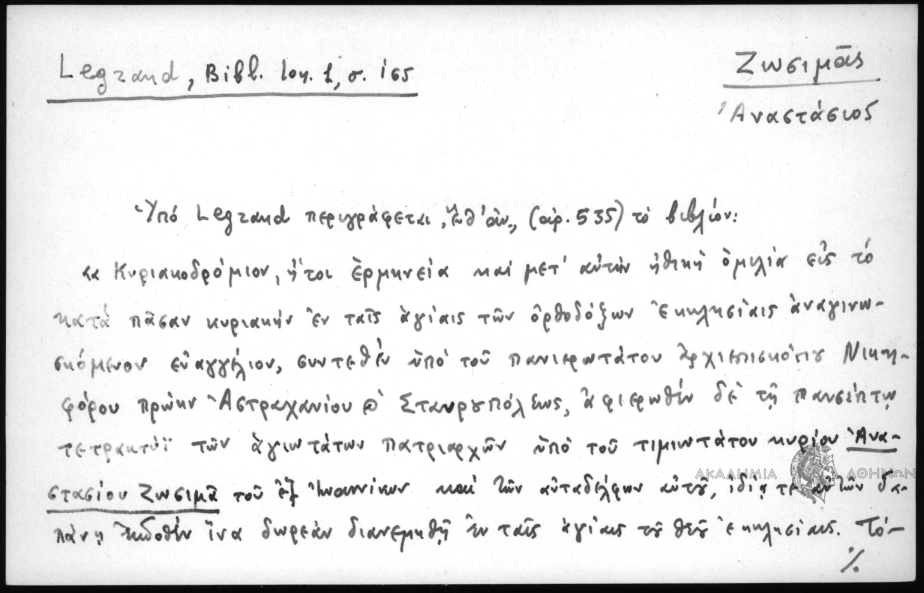 Legrand, Bibl. Ion. 1, σ. 165
Ζωσιμᾶς
Ἀναστάσιος
Ὑπό Legrand περιγράφεται (ἀρ. 535) τό βιβλίον:
« Κυριακοδρόμιον, ἤτοι ἑρμηνεία καί μετ' αὐτήν ἠθική ὁμιλία εἰς τό
κατά πᾶσαν κυριακήν ἐν ταῖς ἁγίαις τῶν ὀρθοδόξων ἐκκλησίαις ἀναγινω-
σκόμενον εὐαγγέλιον, συντεθέν ὑπό τοῦ πανιερωτάτου ἀρχιεπισκόπου Νικη-
φόρου πρώην Ἀστραχανίου Σταυρυπόλεως, ἀφιερωθέν δέ τῇ πανσέπτῳ
τετρακτύϊ τῶν ἁγιωτάτων πατριαρχῶν ὑπό τοῦ τιμιωτάτου κυρίου Ἀνα-
ΑΚΑΔΗΜΙΑ ΑΘΗΝΩΝ
στασίου Ζωσιμᾶ τοῦ ἐξ Ἰωαννίνων καί τῶν αὐταδέλφων αὐτοῦ, ἰδίᾳ τε αὐτῶν δα-
πάνῃ ἐκδοθέν ἵνα δωρεάν διανεμηθῇ ἐν ταῖς ἁγίαις τοῦ θεοῦ ἐκκλησίαις. Τό-
%.